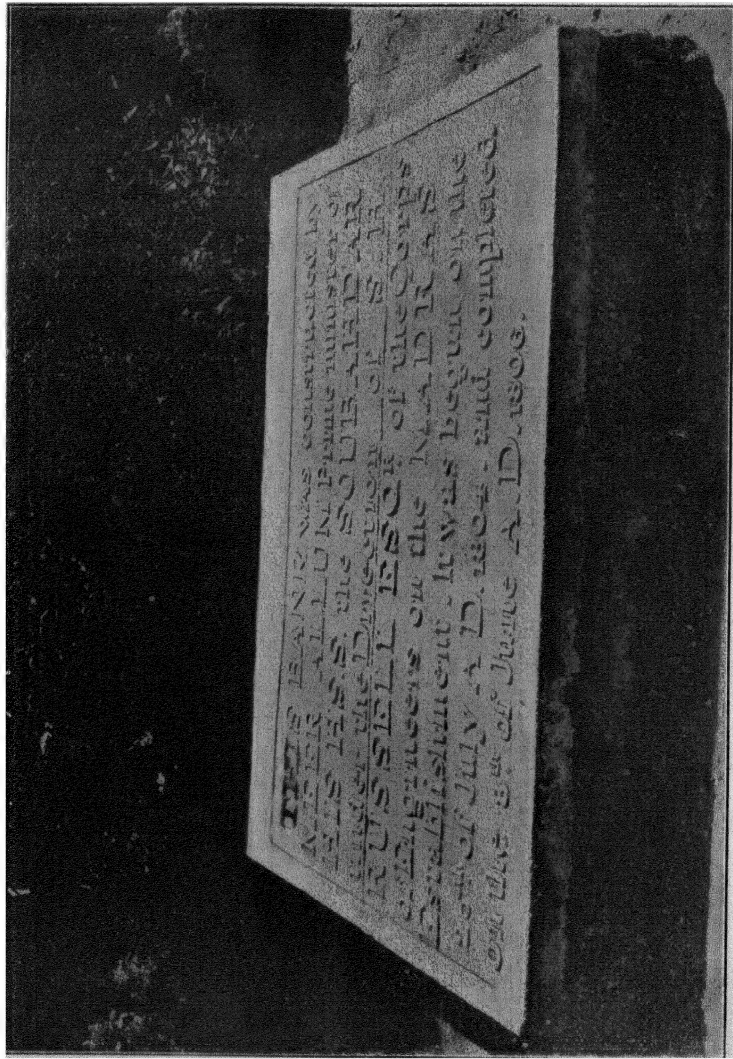 THIS BANK WAS constructed by
MEER ALLUM Prime minister of
HIS H.S.S. the SOUBAHDAR
under the Direction of S. H.
RUSSELL ESQR. of the Corps
of Engineers on the MADRAS
Establishment. It was begun on the
of July A D. 1804. and completed
on the 8th of June A.D. 1806.